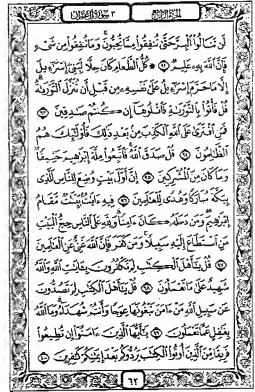 الجزء الرابع ٣ سورة آل عمران
لَن تَنَالُوا۟ ٱلْبِرَّ حَتَّىٰ تُنفِقُوا۟ مِمَّا تُحِبُّونَ ۚ وَمَا تُنفِقُوا۟ مِن شَىْءٍ
فَإِنَّ ٱللَّهَ بِهِۦ عَلِيمٌ ٩٢ كُلُّ ٱلطَّعَامِ كَانَ حِلًّا لِّبَنِىٓ إِسْرَٰٓءِيلَ
إِلَّا مَا حَرَّمَ إِسْرَٰٓءِيلُ عَلَىٰ نَفْسِهِۦ مِن قَبْلِ أَن تُنَزَّلَ ٱلتَّوْرَىٰةُ ۗ
قُلْ فَأْتُوا۟ بِٱلتَّوْرَىٰةِ فَٱتْلُوهَآ إِن كُنتُمْ صَٰدِقِينَ ٩٣
فَمَنِ ٱفْتَرَىٰ عَلَى ٱللَّهِ ٱلْكَذِبَ مِنۢ بَعْدِ ذَٰلِكَ فَأُو۟لَٰٓئِكَ هُمُ
ٱلظَّٰلِمُونَ ٩٤ قُلْ صَدَقَ ٱللَّهُ ۗ فَٱتَّبِعُوا۟ مِلَّةَ إِبْرَٰهِيمَ حَنِيفًا
وَمَا كَانَ مِنَ ٱلْمُشْرِكِينَ ٩٥ إِنَّ أَوَّلَ بَيْتٍ وُضِعَ لِلنَّاسِ لَلَّذِى
بِبَكَّةَ مُبَارَكًا وَهُدًى لِّلْعَٰلَمِينَ ٩٦ فِيهِ ءَايَٰتٌۢ بَيِّنَٰتٌ مَّقَامُ
إِبْرَٰهِيمَ ۖ وَمَن دَخَلَهُۥ كَانَ ءَامِنًا ۗ وَلِلَّهِ عَلَى ٱلنَّاسِ حِجُّ ٱلْبَيْتِ
مَنِ ٱسْتَطَاعَ إِلَيْهِ سَبِيلًا ۚ وَمَن كَفَرَ فَإِنَّ ٱللَّهَ غَنِىٌّ عَنِ ٱلْعَٰلَمِينَ
٩٧ قُلْ يَٰٓأَهْلَ ٱلْكِتَٰبِ لِمَ تَكْفُرُونَ بِـَٔايَٰتِ ٱللَّهِ وَٱللَّهُ
شَهِيدٌ عَلَىٰ مَا تَعْمَلُونَ ٩٨ قُلْ يَٰٓأَهْلَ ٱلْكِتَٰبِ لِمَ تَصُدُّونَ
عَن سَبِيلِ ٱللَّهِ مَنْ ءَامَنَ تَبْغُونَهَا عِوَجًا وَأَنتُمْ شُهَدَآءُ ۗ وَمَا ٱللَّهُ
بِغَٰفِلٍ عَمَّا تَعْمَلُونَ ٩٩ يَٰٓأَيُّهَا ٱلَّذِينَ ءَامَنُوٓا۟ إِن تُطِيعُوا۟
فَرِيقًا مِّنَ ٱلَّذِينَ أُوتُوا۟ ٱلْكِتَٰبَ يَرُدُّوكُم بَعْدَ إِيمَٰنِكُمْ كَٰفِرِينَ ١٠٠
٦٢